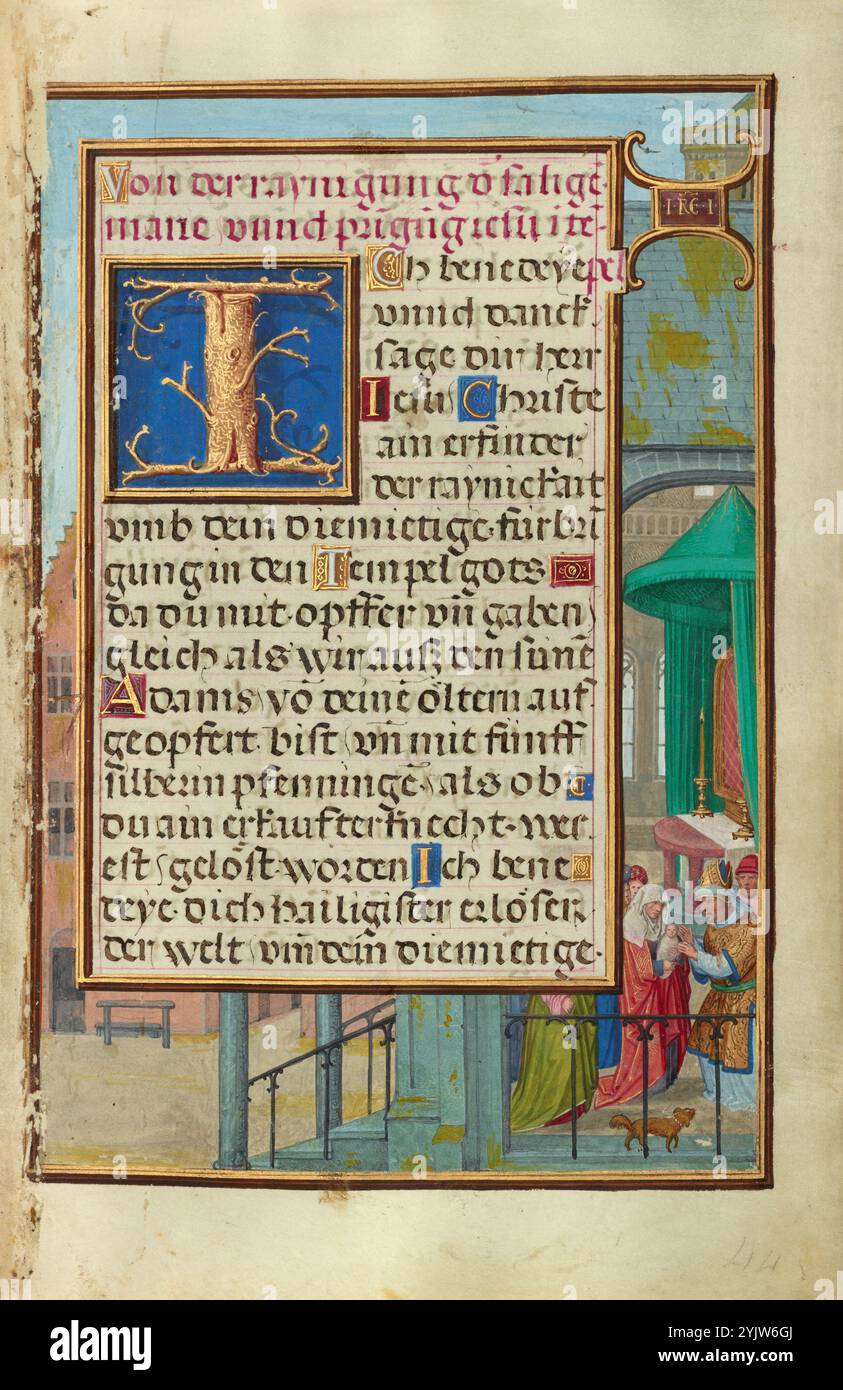 Von der raynigung d̄ salige
marie vnnd prīgūg iesu i tē
Ich benedeye pel
vnnd danck
sage dir herr
Iesu Christe
ain erfinder
der raynickait
vmb dein diemietige fürbrī
gung in den Tempel gots
da du mit opffer vn̄ gaben
gleich als wir ausz den sūnē
Adams vō deinē öltern auf
geopfert bist vn̄ mit fünff
silberin pfenningē als ob
du ain erkaufter knecht wer
est gelöst worden Ich bene
deye dich hailigister erlöser
der welt vm̄ dein̄ diemietige
44
alamy
Image ID: 2YJW6GJ
www.alamy.com